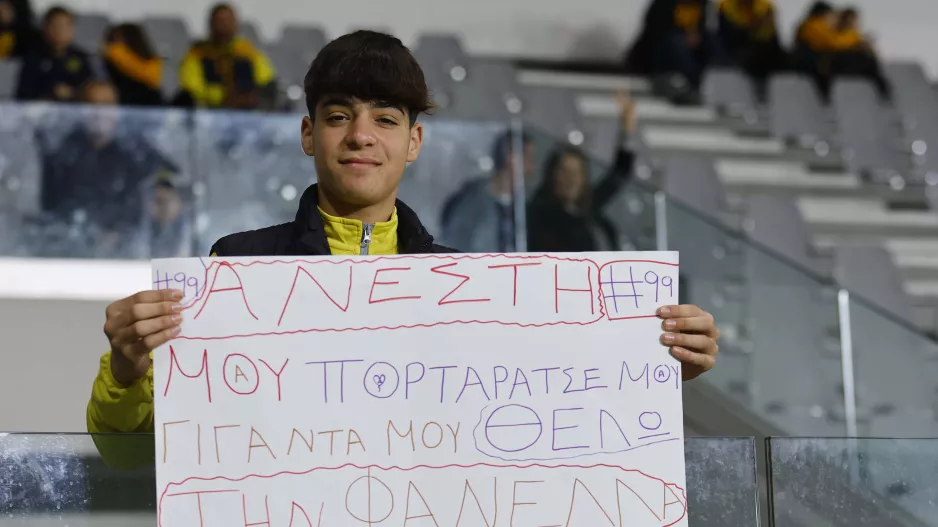 #99 ΑΝΕΣΤΗ #99
ΜΟΥ ΠΟΡΤΑΡΑΤΣΕ ΜΟΥ
ΓΙΓΑΝΤΑ ΜΟΥ ΘΕΛΩ
ΤΗΝ ΦΑΝΕΛΛΑ